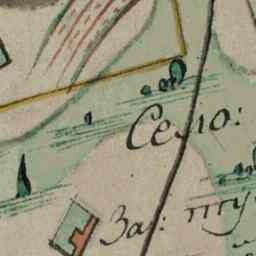 Село:
За: пу